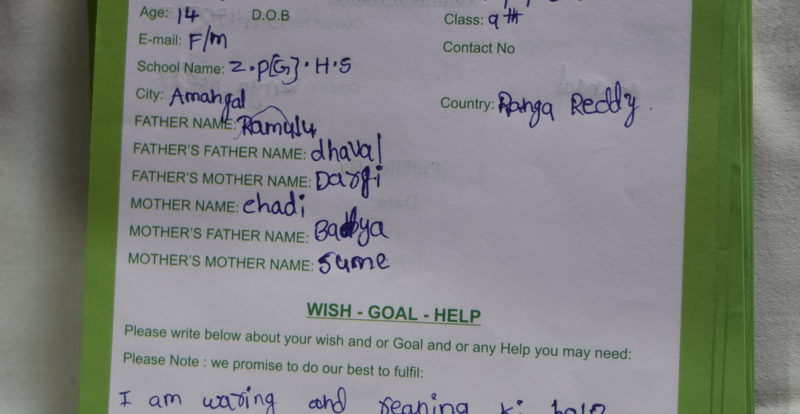 Age: 14 D.O.B Class: 9th
E-mail: F/m Contact No
School Name: Z.P[G].H.S
City: Amangal Country: Ranga Reddy.
FATHER NAME: Ramulu
FATHER'S FATHER NAME: dhaval
FATHER'S MOTHER NAME: Dargi
MOTHER NAME: chadi
MOTHER'S FATHER NAME:
MOTHER'S MOTHER NAME: Sume
WISH - GOAL - HELP
Please write below about your wish and or Goal and or any Help you may need:
Please Note : we promise to do our best to fulfil:
I am and